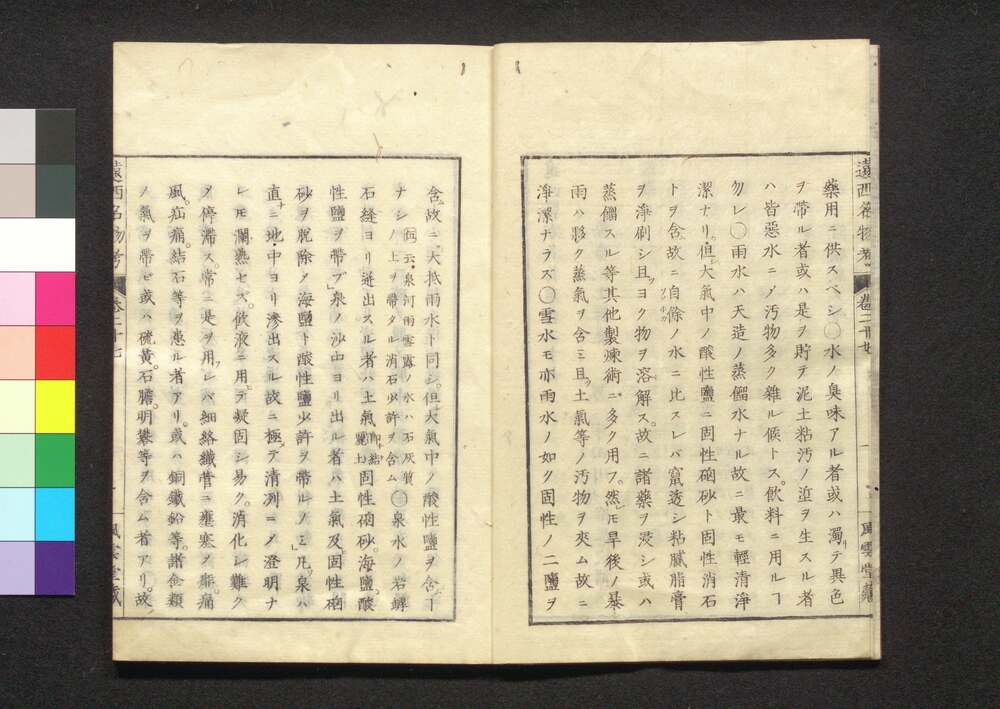 藥用ニ供スベシ〇水ノ臭味アル者或ハ濁テ異色
ヲ帶ル者或ハ是ヲ貯テ泥土粘汚ノ渣ヲ生スル者
ハ皆惡水ニ〆汚物多ク雜ル候トス飲料ニ用ルヿ
勿レ〇雨水ハ天造ノ蒸餾水ナル故ニ最モ輕清淨
潔ナリ但大氣中ノ酸性鹽ニ固性硇砂ト固性消石
トヲ含故ニ自餘ノ水ニ比スレバ竄透シ粘膩脂膏
ヲ淨刷シ且ヨク物ヲ溶解ス故ニ諸藥ヲ浸シ或ハ
蒸餾スル等其他製煉術ニ多ク用フ然レモ旱後ノ暴
雨ハ夥ク蒸氣ヲ含ミ且土氣等ノ汚物ヲ夾ム故ニ
淨潔ナラズ〇雪水モ亦雨水ノ如ク固性ノ二鹽ヲ
遠西名物考 卷二十七 風雲堂藏
含故ニ大抵雨水ト同シ但大氣中ノ酸性鹽ヲ含ヿ
ナシ 泉河雨雪露ノ水ハ石灰質ノ土ヲ帶タル消石少許ヲ含ム 〇泉水ノ岩罅
石縫ヨリ迸出スル者ハ土氣 固性硇砂海鹽酸
性鹽ヲ帶ブ泉ノ沙中ヨリ出ル者ハ土氣及固性硇
砂ヲ脱除〆海鹽ト酸性鹽少許ヲ帶ルノミ凡泉ハ
直ニ地中ヨリ滲出スル故ニ極テ清冽ニ〆澄明ナ
レモ瀾熟セズ飲液ニ用テ凝固シ易ク消化シ難ク
〆停滯ス常ニ是ヲ用レバ細絡纖管ニ壅塞〆 痛
風疝痛結石等ヲ患ル者アリ或ハ銅鐵鉛等諸金類
ノ氣ヲ帶ビ或ハ硫黄石膽明礬等ヲ含ム者アリ故
遠西名物考 卷二十七 風雲堂藏